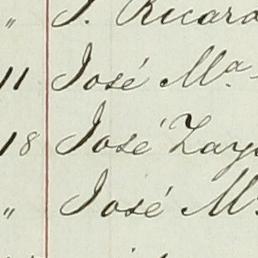 " J. Ricard
11 José Mª
18 José Zay
" José M